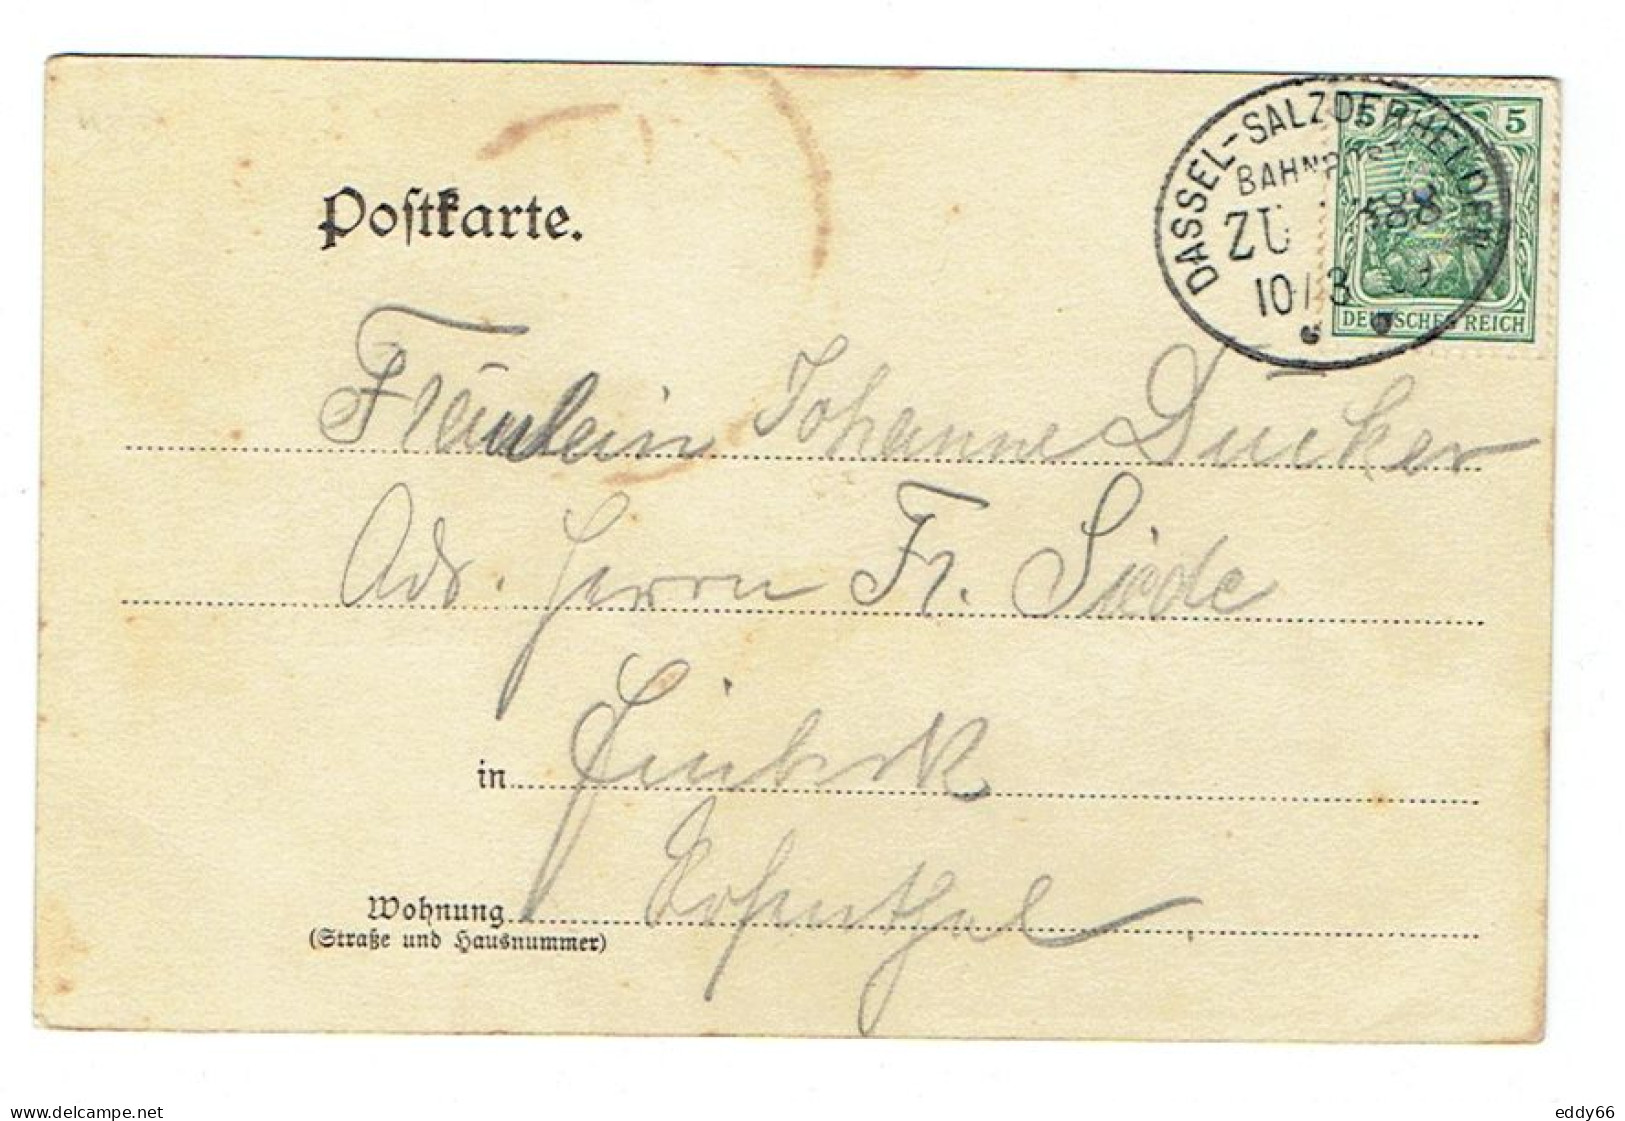 DASSEL-SALZDERHELDEN
BAHNPOST
ZUG 388
10/3
5 5
DEUTSCHES REICH
Poſtkarte.
Fräulein Johanne Ducker
Adr. Herrn Fr. Siede
in Einbeck
Wohnung
(Straße und Hausnummer)
www.delcampe.net
eddy66